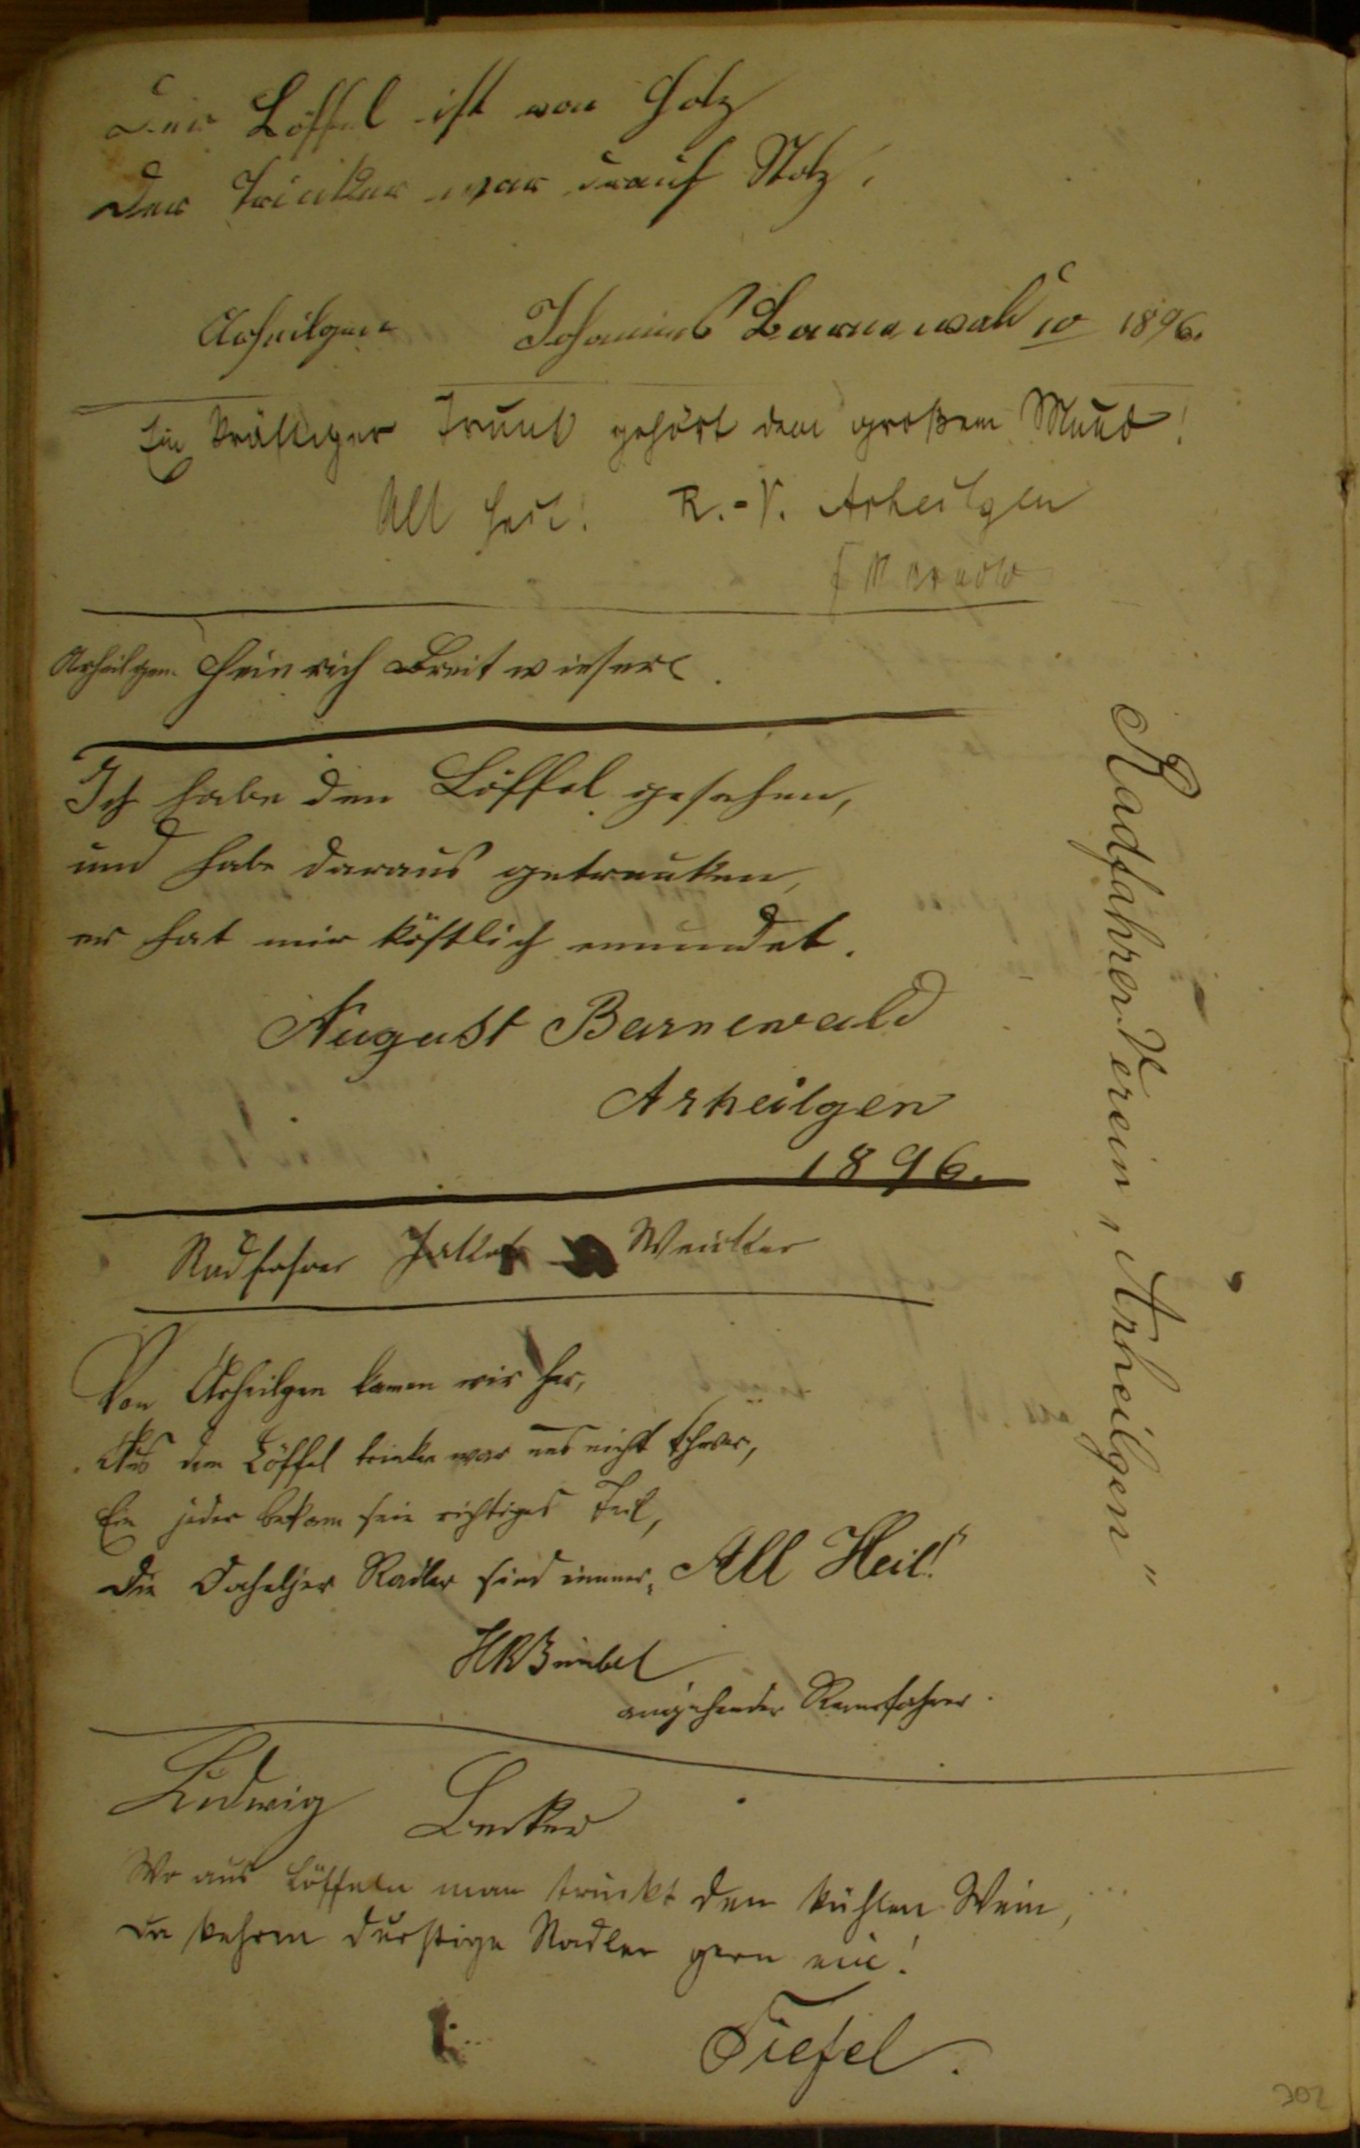 Der Löffel ist von Holz
Der Trinker war drauf Stolz.
Arheilgen Johannes Barnewald 10 1896.
Ein kräftiger Trunk gehört dem großem Mund!
All Heil! R.-V. Arheilgen
Arheilgen. Heinrich Breitwieser.
Ich habe den Löffel gesehen,
und habe daraus getrunken,
er hat mir köstlich mundet.
August Barnewald
Arheilgen
1896.
Radfahrer Jakob
Von Arheilgen kamen wir her,
Aus dem Löffel trinke war uns nicht schwer,
Ein jeder bekam sein richtiges Teil,
Die Radler sind immer „All Heil!"
angehender Rennfahrer.
Ludwig Becker
Wo aus Löffeln man trinkt den kühlen Wein,
Da kehren durstige Radler gern ein!
Tiefel.
Radfahrer-Verein „Arheilgen"
302